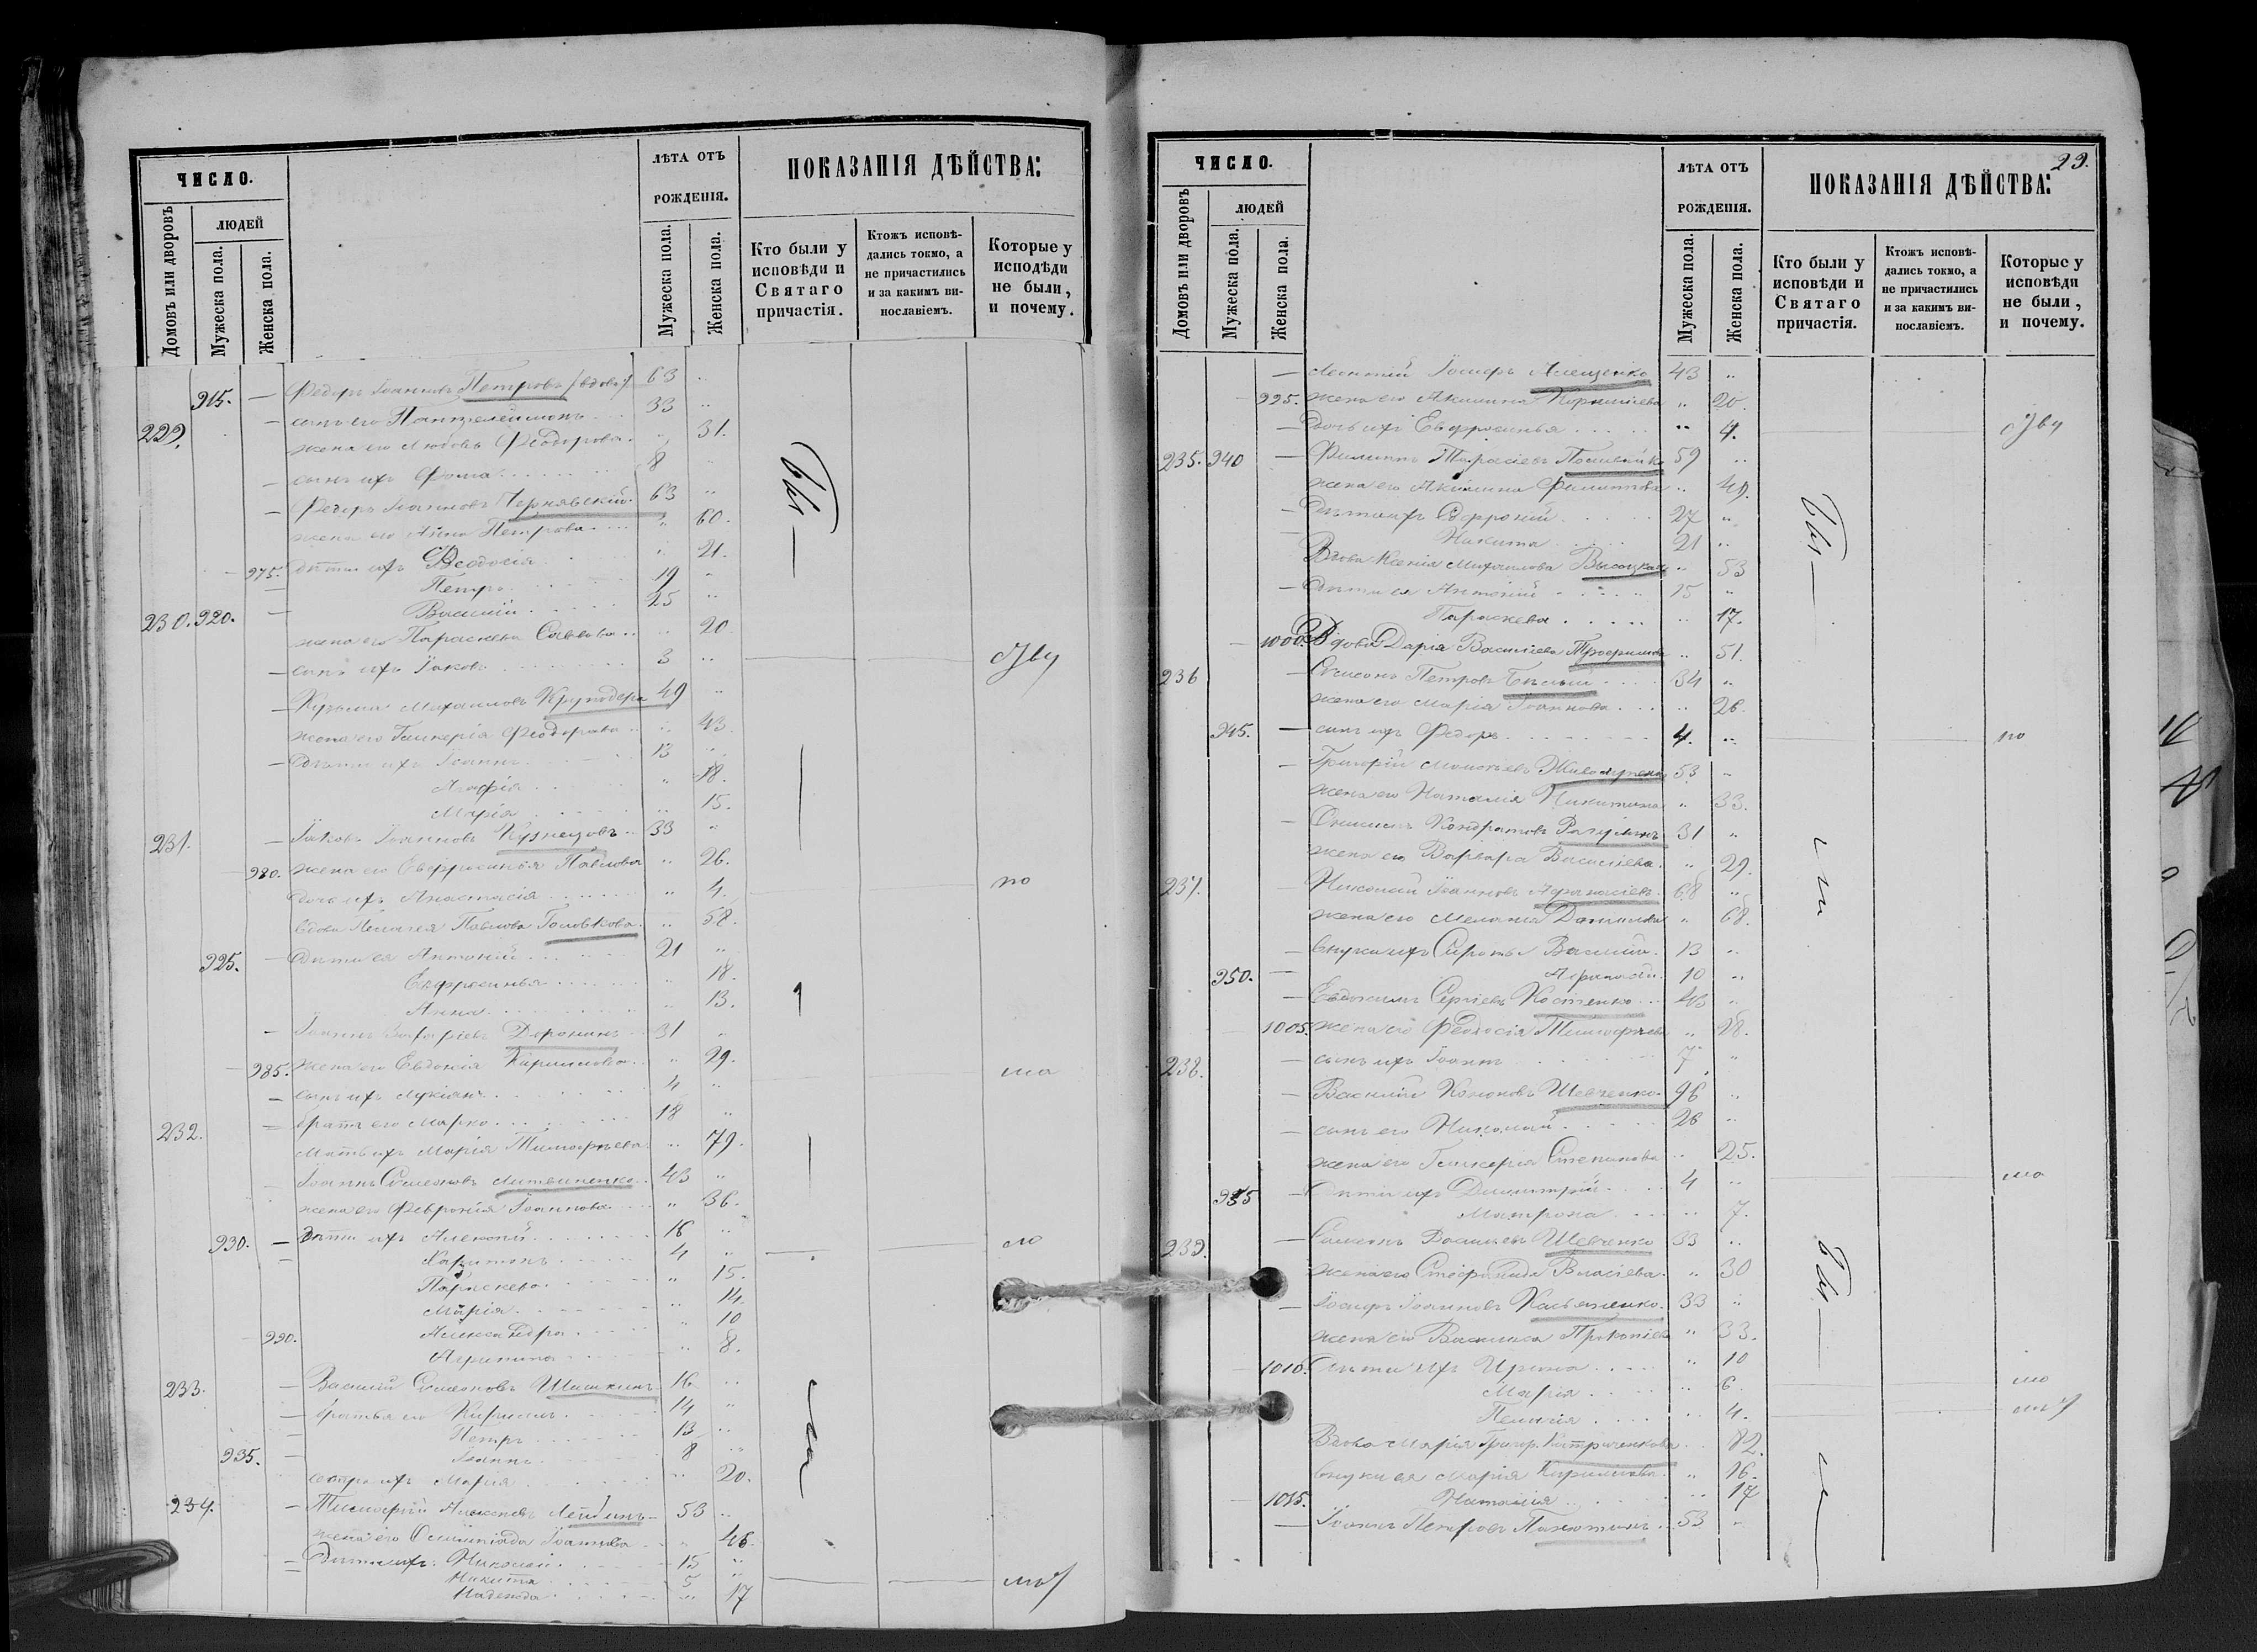 ЧИСЛО.
ЛѢТА ОТЪ РОЖДЕНІЯ.
ПОКАЗАНІЯ ДѢЙСТВА:
Домовъ или дворовъ
ЛЮДЕЙ
Мужеска пола.
Женска пола.
Мужеска пола.
Женска пола.
Кто были у исповѣди и Святаго причастія.
Ктожъ исповѣдались токмо, а не причастились и за какимъ винославіемъ.
Которые у исподѣди не были, и почему.
915. — Федоръ Іоанновъ Петровъ /вдовъ/ 63 "
229. — сынъ его Пантелеимонъ 33 "
жена его Любовь Феодорова " 31.
— сынъ ихъ Фома 8 "
— Федоръ Іоанновъ Чернявскій 63 "
жена его Анна Петрова " 60.
975. дѣти ихъ Феодосія " 21.
— Петръ 19 "
230. 920. — Василій 25 "
жена его Параскева Саввова " 20
— сынъ ихъ Іаковъ 3 "
— Кузьма Михаиловъ Круподера 49 "
жена его Гликерія Феодорова " 43.
— Дѣти ихъ Іоаннъ 13 "
Агафія " 18.
Марія " 15.
231. — Іаковъ Іоанновъ Кузнецовъ 33 "
980. жена его Евфросинья Павлова " 26.
дочь ихъ Анастасія " 4. по
вдова Пелагея Павлова Головкова " 58.
925. — Дѣти ея Антоній 21 "
Евфросинья " 18.
Анна " 13.
— Іоаннъ Захаріевъ Доронинъ 31 "
985. жена его Евдокія Кириллова " 29.
— сынъ ихъ Лукіанъ 4 "
232. — братъ его Марко 18 "
мать ихъ Марія Тимофѣева " 79.
— Іоаннъ Симеоновъ Литвиненко 43 "
жена его Феврония Іоаннова " 36.
930. — Дѣти ихъ Алексѣй 16 "
— Харитонъ 4 "
Параскева " 15.
Марія " 14.
990. Александра " 10
Агрипина " 8.
233. — Василій Симеоновъ Шишкинъ 16 "
— братья его Кириллъ 14 "
— Петръ 13 "
935. — Іоаннъ 8 "
сестра ихъ Марія " 20.
234. — Тимофѣй Алексѣевъ 53 "
жена его Олимпіада Іоаннова " 46
— Дѣти ихъ Николай 15 "
— Никита 5 "
Надежда " 17
29.
ЧИСЛО.
ЛѢТА ОТЪ РОЖДЕНІЯ.
ПОКАЗАНІЯ ДѢЙСТВА:
Домовъ или дворовъ
ЛЮДЕЙ
Мужеска пола.
Женска пола.
Мужеска пола.
Женска пола.
Кто были у исповѣди и Святаго причастія.
Ктожъ исповѣдались токмо, а не причастились и за какимъ винославіемъ.
Которые у исповѣди не были, и почему.
— Леонтій Іосифъ Алещенко 43 "
995. жена его Акилина Корниліева " 20.
— Дочь ихъ Евфросинья " 4.
235. 940 — Филиппъ Тарасіевъ 59 "
жена его Акилина Филиппова " 49.
— Дѣти ихъ Софроній 27 "
— Никита 21 "
Вдова Ксенія Михаилова Высоцкая " 53
— Дѣти ея Антоній 15 "
Параскева " 17.
1000. Вдова Дарія Василіева Трофимова " 51.
236 — Симеонъ Петровъ Бѣлый 34 "
жена его Марія Іоаннова " 26.
945. — сынъ ихъ Федоръ 4. " по
— Григорій 53 "
жена его Наталія Никитина " 33.
— Кондратовъ 31 "
жена его Варвара Василіева " 29.
237. Николай Іоанновъ Афанасіевъ 68 "
жена его Меланія Данилова " 68.
— внуки ихъ Сироты Василій 13 "
950. — Афанасій 10 "
— Евдокимъ Сергіевъ Костенко 43 "
1005. жена его Феодосія Тимофѣева " 28.
238. — сынъ ихъ Іоаннъ 7 "
— Василій Кононовъ Шевченко 96 "
— сынъ его Николай 26 "
жена его Гликерія Степанова " 25.
955 — Дѣти ихъ Димитрій 4 "
Матрона " 7.
239. — Симеонъ Василіевъ Шевченко 33 "
жена его Стефанида Власіева " 30
— Іосифъ Іоанновъ Касьяненко 33 "
жена его Василиса Прокопіева " 33.
1010. Дѣти ихъ Ирина " 10
Марія " 6.
Пелагія " 4.
Вдова Марія Григор. " 82.
внуки ея Марія Кириллова " 16.
1015. Наталія " 17
— Іоаннъ Петровъ Панютинъ 53 "